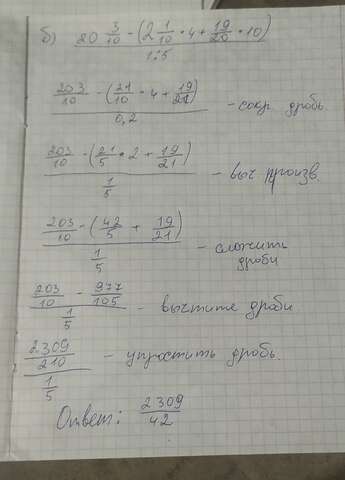 б) 20 3/10 - (2 1/10 • 4 + 19/20 • 10)
1:5
203/10 - (21/10 • 4 + 19/21)
0,2 - сокр. дробь
203/10 - (21/5 • 2 + 19/21)
1/5 - выч произв.
203/10 - (42/5 + 19/21)
1/5 - сложить
дроби
203/10 - 977/105
1/5 - вычтите дроби
2309/210 - упростить дробь.
1/5
Ответ: 2309/42